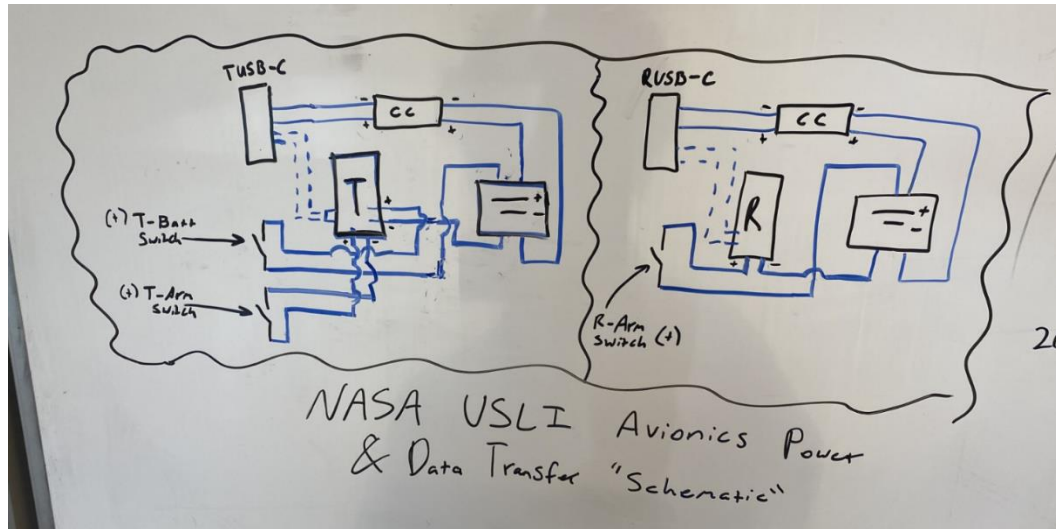 TUSB-C
RUSB-C
- CC -
+ +
- CC -
+ +
T
+
+ -
+
-
R
+ -
+
-
(+) T-Batt
Switch
(+) T-Arm
Switch
R-Arm
Switch (+)
NASA USLI Avionics Power
& Data Transfer "Schematic"